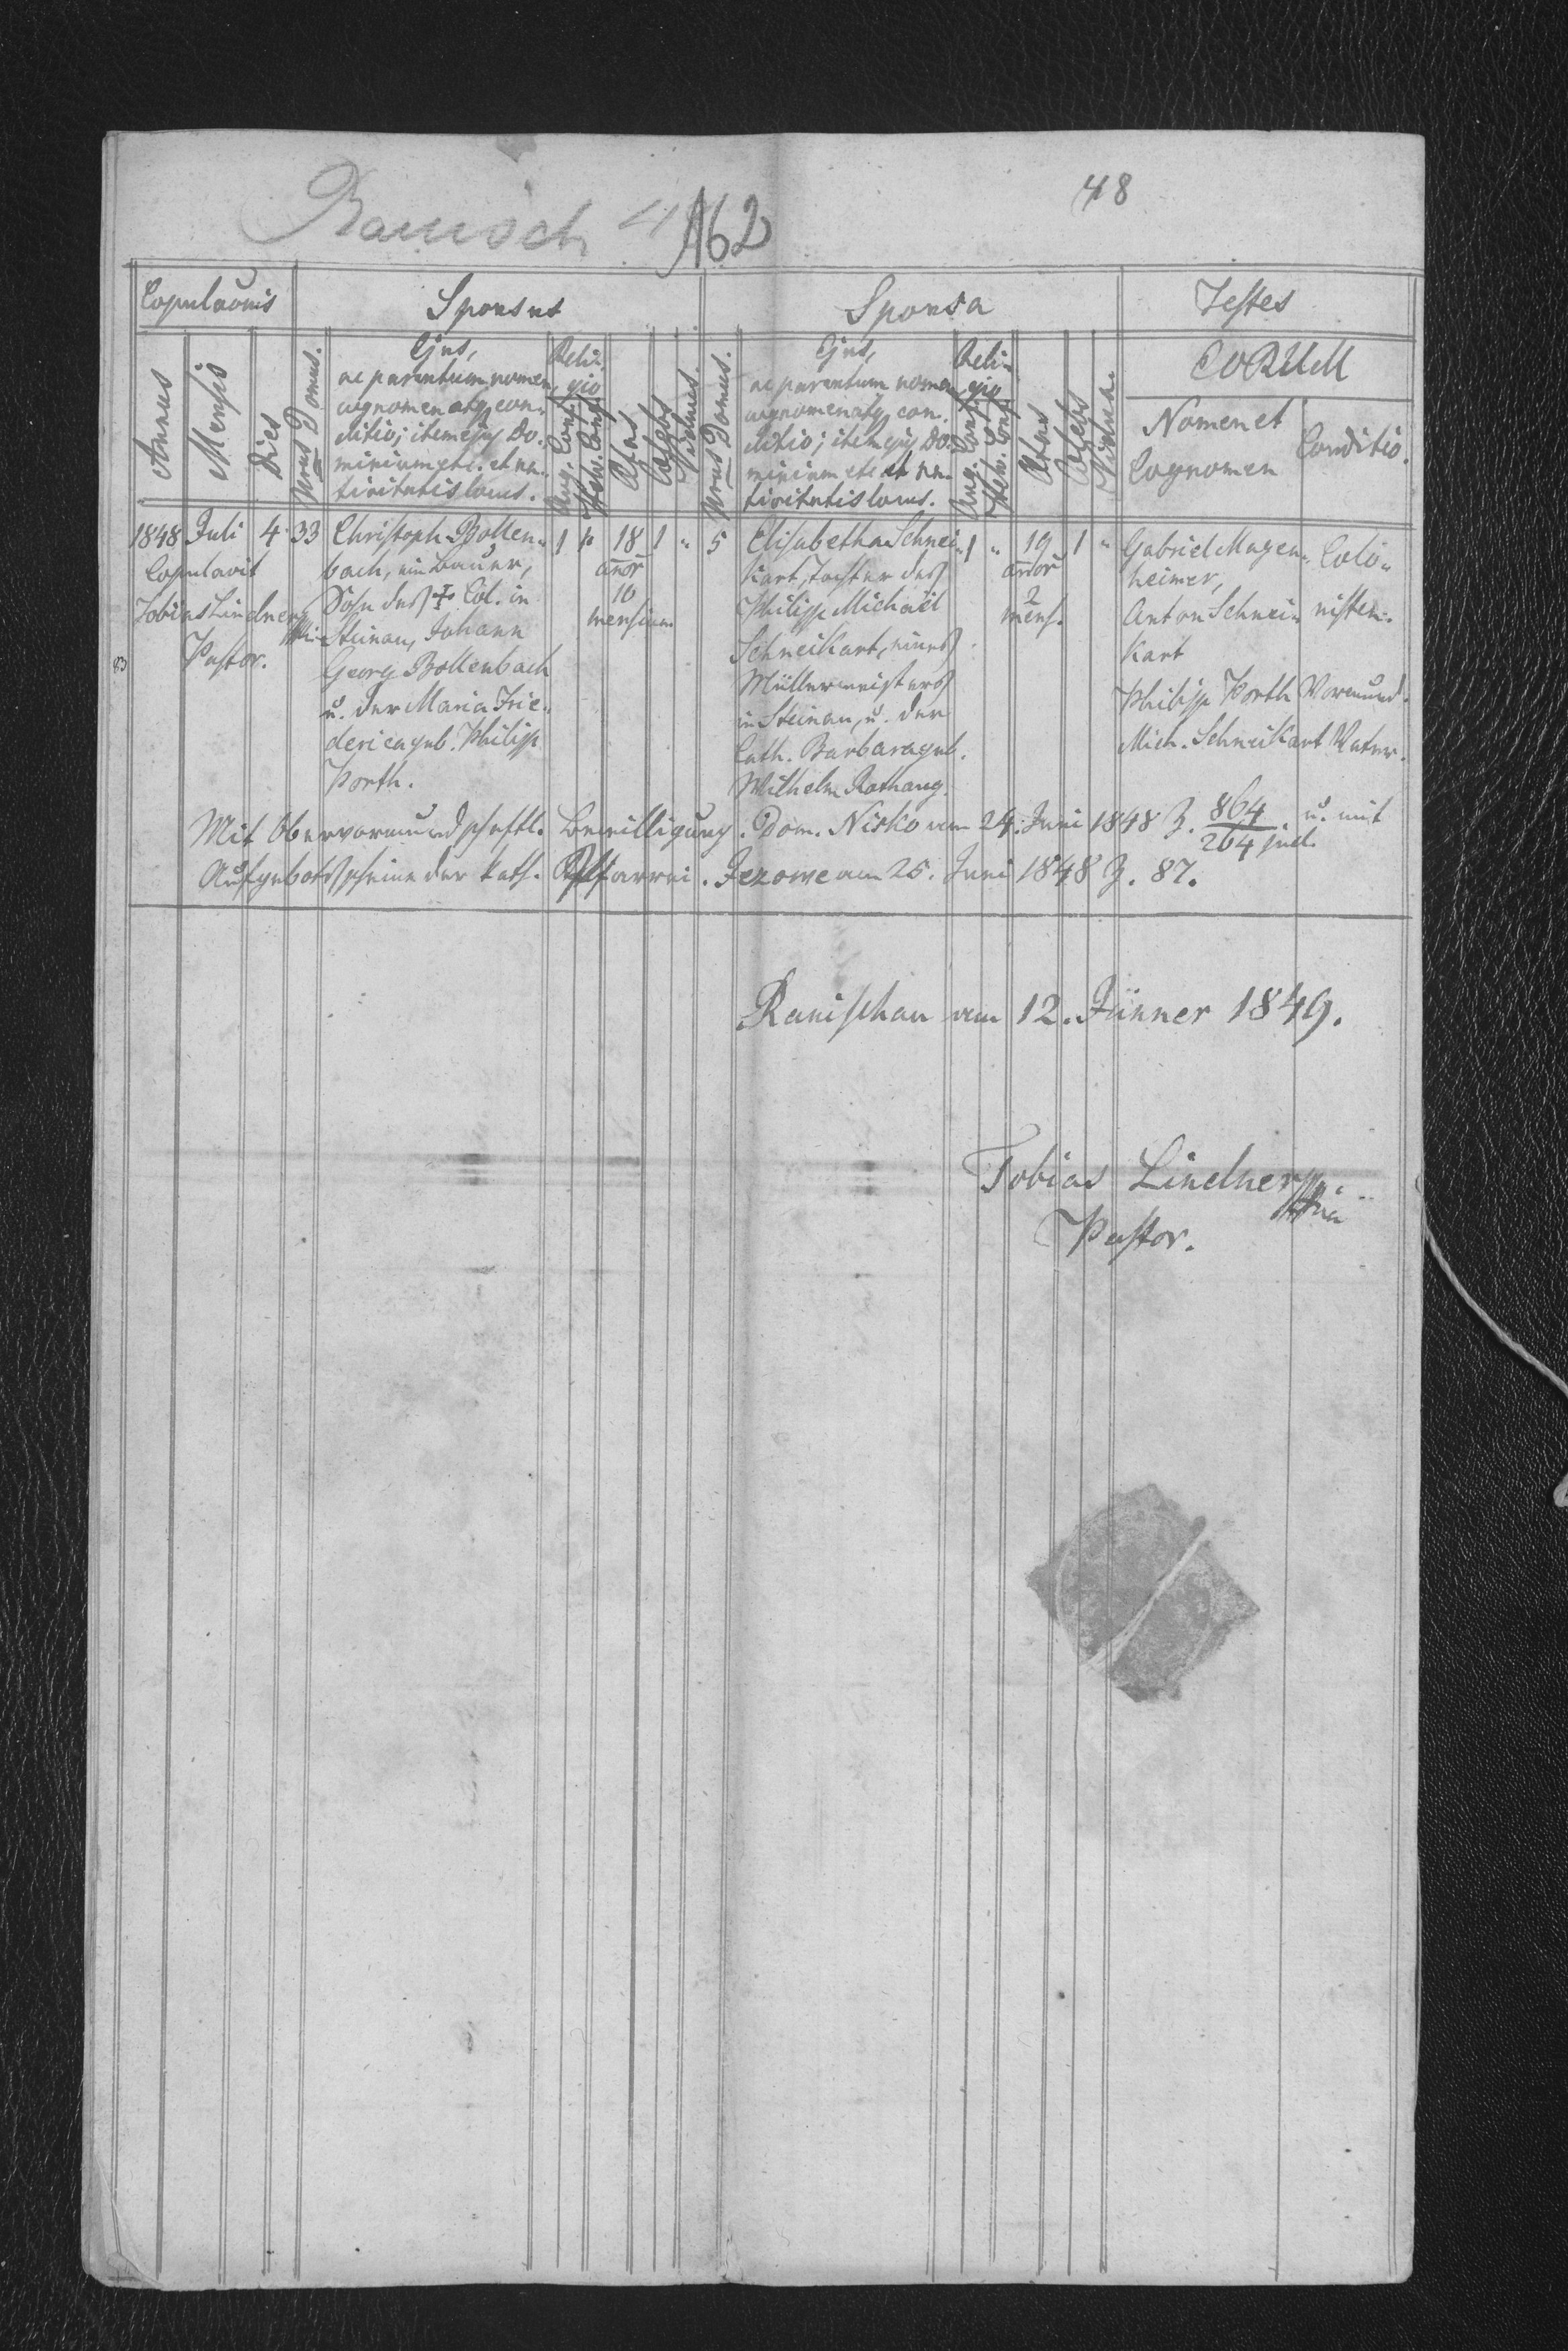 48
Ranisch 4 162
Copulationis
Sponsus
Sponsa
Testes
Annus
Mensis
Dies
Nrus Domus.
Ejus,
ac parentum nomen,
cognomen atq con-
ditio; item ejus Do-
minium etc. et na-
tivitatis locus.
Reli-
gio
Aug. Conf.
Helv. Conf.
Aetas
Caelebs
Viduus.
Nrus Domus.
Ejus,
ac parentum nomen
cognomen atq con-
ditio; item ejus Do-
minium etc et na-
tivitatis locus.
Reli-
gio
Aug. Conf.
Helv. Conf.
Aetas
Caelebs
Vidua.
EORUM
Nomen et
Cognomen
Conditio.
1848 Juli 4. 33
Copulavit
Tobias Lindner
Pastor.
83
Christoph Bollen-
bach, ein Bauer,
Sohn des † Col. in
Steinau, Johann
Georg Bollenbach
u. der Maria Frie-
derica geb. Philipp
Porth.
1 " 18 1 "
anor
10
mensium
5
Elisabetha Schnei-
kart, Tochter des
Philipp Michaël
Schneikart, eines
Müllermeisters
in Steinau, u. der
Cath. Barbara geb.
Wilhelm Rothaug.
1 " 19 1 "
annor
2
mens.
Gabriel Magen-
heimer,
Anton Schnei-
kart
Colo-
nisten.
Philipp Porth Vormund.
Mich. Schneikart Vater.
Mit Obervormundschaftl. Bewilligung. Dom. Nisko am 24. Juni 1848 Z. 864/264 jud. u. mit
Aufgebotsscheine der kath. Pfarrei. Jezowe am 25. Juni 1848 Z. 87.
Ranischau am 12. Jänner 1849.
Tobias Lindner
Pastor.